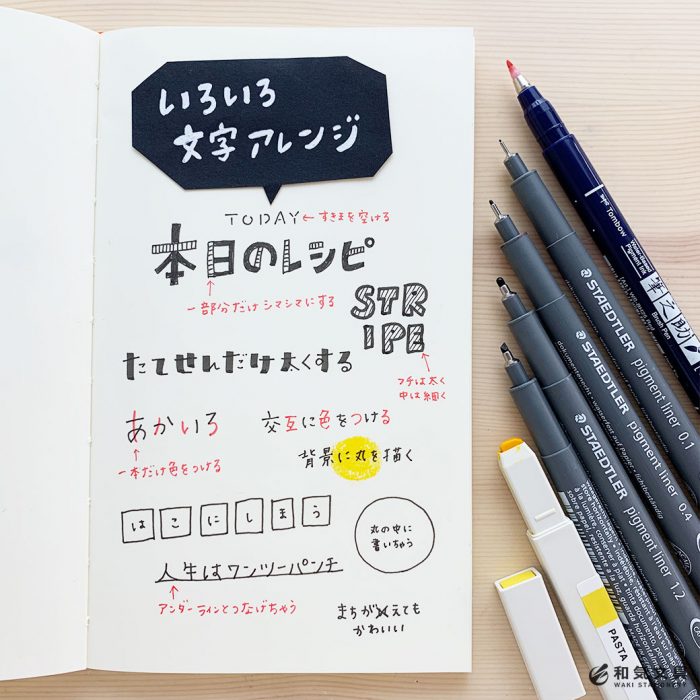 いろいろ
文字アレンジ
TODAY ←すきまを空ける
本日のレシピ
一部分だけシマシマにする
STR
IPE
フチは太く
中は細く
たてせんだけ太くする
あかいろ
一本だけ色をつける
交互に色をつける
背景に丸を描く
はこにしまう
丸の中に
書いちゃう
人生はワンツーパンチ
アンダーラインとつなげちゃう
まちがえても
かわいい
Tombow
Water-Based Pigment Ink
筆之助
Brush Pen
STAEDTLER
pigment liner 0.1
STAEDTLER
pigment liner 0.4
STAEDTLER
pigment liner 1.2
PASTA
和気文具
WAKI STATIONERY